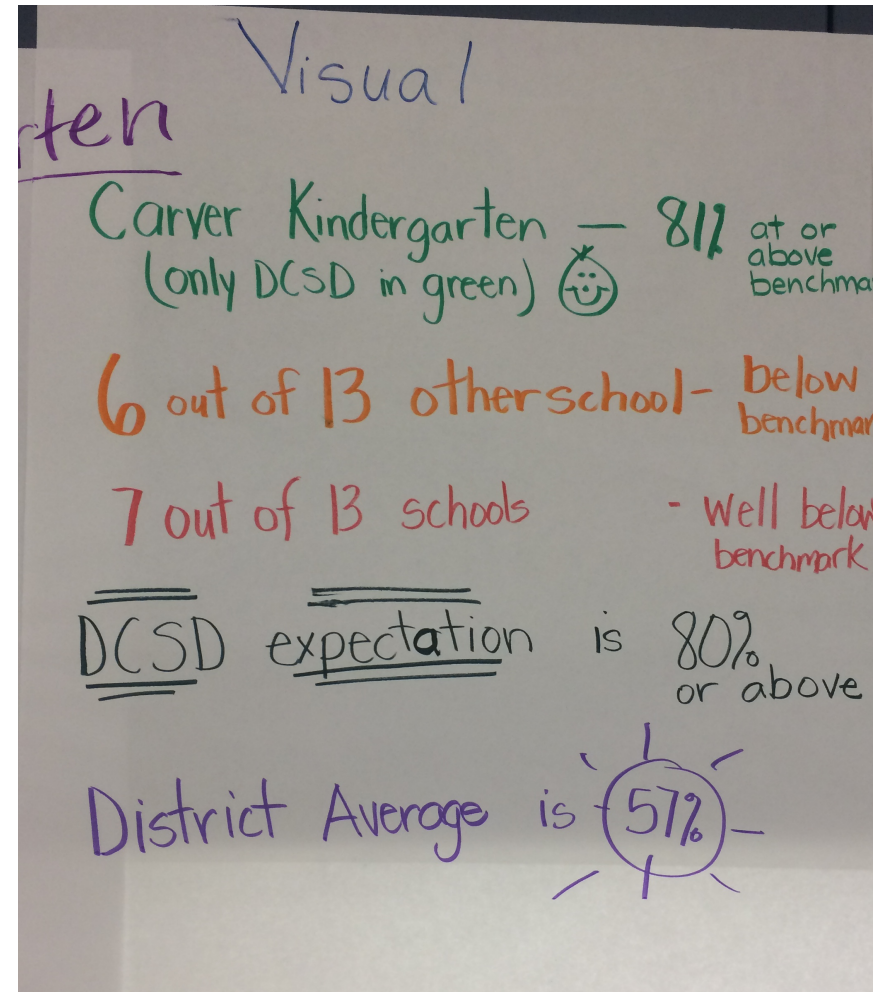 Visual
rten
Carver Kindergarten — 81% at or above benchma
(only DCSD in green)
6 out of 13 other school - below benchmar
7 out of 13 schools - well below benchmark
DCSD expectation is 80% or above
District Average is 57%